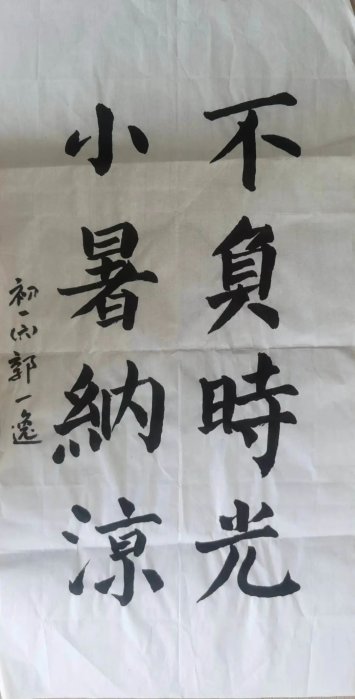 不負時光
小暑納涼
初一(六)郭一逸